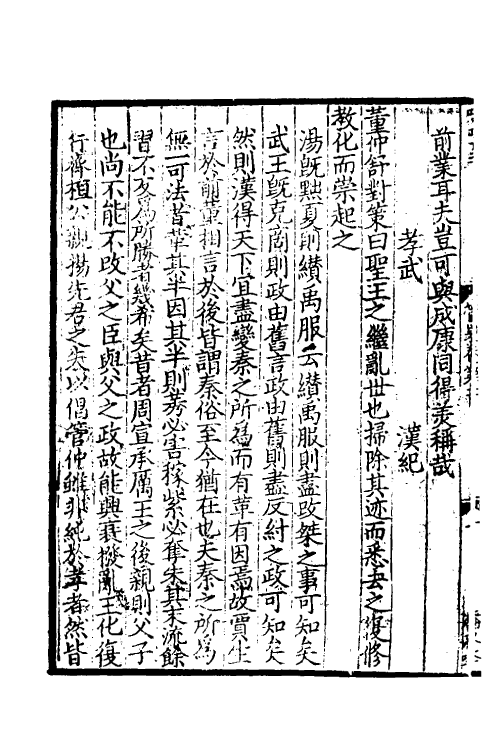 前業耳夫豈可與成康同得羙稱哉
孝武　漢紀
董仲舒對策曰聖王之繼亂世也掃除其迹而悉去之復修
教化而崇起之
湯旣黜夏則纉禹服云纉禹服則盡改桀之事可知矣
武王旣克商則政由舊言政由舊則盡反紂之政可知矣
然則漢得天下宜盡變秦之所爲而有革有因焉故賈生
言於前董相言於後皆謂秦俗至今猶在也夫秦之所爲
無一可法者革其半因其半則莠必害稼紫必奪朱其末流餘
習不反爲所勝者幾希矣昔者周宣承厲王之後親則父子
也尚不能不改父之臣與父之政故能興衰撥亂王化復
行齊桓公觀揚先君之失以倡管仲雖非純於孝者然皆